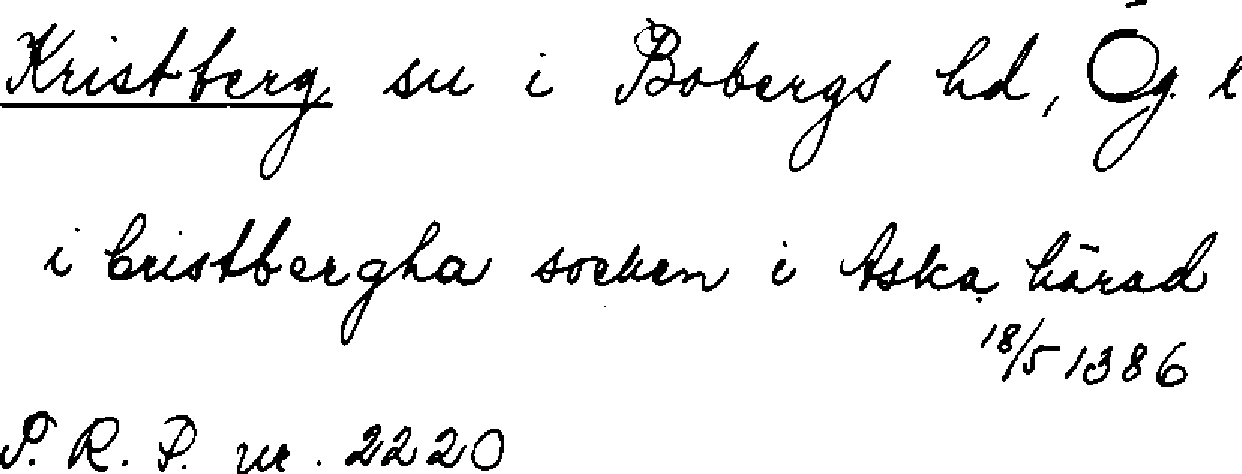 Kristberg sn i Bobergs hd, Ög. l
i Cristbergha socken i Aska härad
18/5 1386
P. R. P. nr. 2220